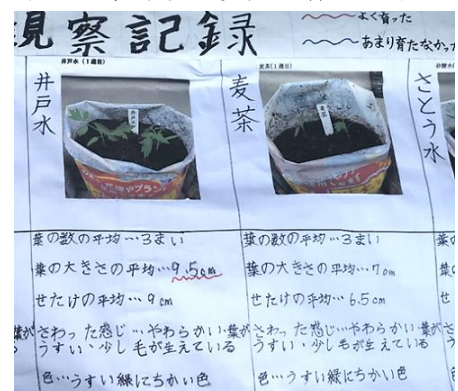 観察記録
よく育った
あまり育たなかっ
井戸水(1週目)
井戸水
井戸水
麦茶(1週目)
麦茶
麦茶
さとう水
葉の数の平均…3まい
葉の大きさの平均…9.5cm
せたけの平均…9cm
さわった感じ…やわらかい・葉が
うすい・少し毛が生えている
色…うすい緑にちかい色
葉の数の平均…3まい
葉の大きさの平均…7cm
せたけの平均…6.5cm
さわった感じ…やわらかい・葉が
うすい・少し毛が生えている
色…うすい緑にちかい色